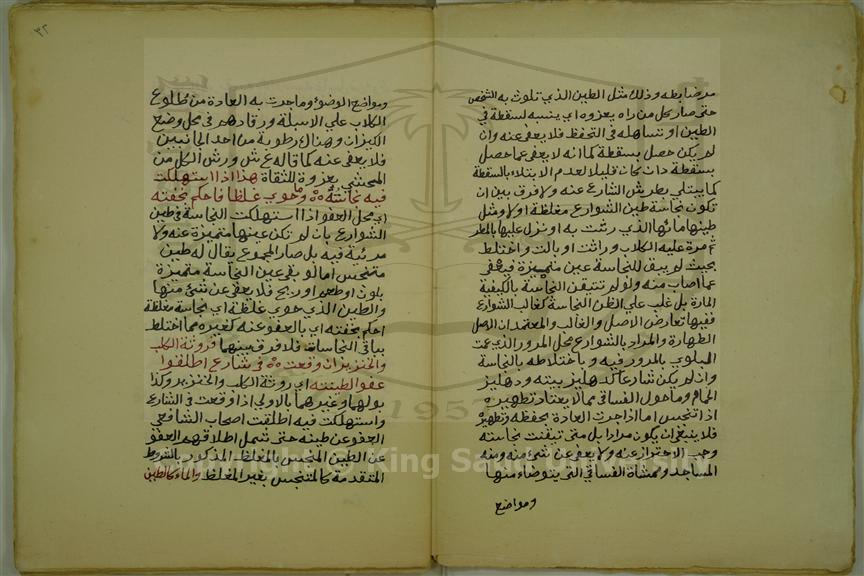 مر ضابطه وذلك مثل الطين الذي تلوث به الشخص
حتى صار بكل من راه يعزوه اي ينسبه لسقطة في
الطين او تساهله في التحفظ فلا يعفى عنه وان
لم يكن حصل بسقطة كما انه لا يعفى عما حصل
بسقطة وان كان قليلا لعدم الابتلاء بالسقطة
كما يبتلي بطرش الشارع عنه ولا فرق بين ان
تكون نجاسة طين الشوارع مغلظة او لا ومثل
طينها مائها الذي رشت به او نزل عليها بالمطر
مرة عليه الكلاب وراثت او بالت واختلط
بحيث لم يبق للنجاسة عين متميزة فيعفى
عما اصاب منه ولو لم تتيقن النجاسة بالكيفية
المارة بل غلب على الظن النجاسة كغالب الشوارع
ففيها تعارض الاصل والغالب والمعتمد ان الاصل
الطهارة والمراد بالشوارع محل المرور الذي عمت
البلوي بالمرور فيه و باختلاطه بالنجاسة
وان لم يكن شارعا كدهليز بيته ودهليز
الحمام وما حول الفساقي مما لا يعتاد تطهيره
اذا تنجس اما اذا جرت العادة بحفظه وتطهيره
فلا ينبغي ان يكون مرادا بل متى تيقنت نجاسته
وجب الاحتراز عنه ولا يعفى عن شئ منه ومنه
المساجد وممشاة الفساقي التي يتوضاء منها
ومواضع
٣٢
ومواضع الوضوء وما جرت به العادة من طلوع
الكلاب علي الاسبلة ورقادهم في محل وضع
الكيزان وهناك رطوبة من احد الجانبين
فلا يعفى عنه كما قاله ع ش ورش الكل من
المحشي بعزوة للثقاة هذا اذا استهلكت
فيه نجاسة وما حوي غلظا فاحكم بخفته
اي محل العفو اذا استهلكت النجاسة في طين
الشوارع بان لم تكن عينها متميزة عنه ولا
مرئية فيه بل صار المجموع يقال له طين
متنجس اما لو بقي عين النجاسة متميزة
بلون او طعم او ريح فلا يعفى عن شئ منها
والطين الذي حوي غلظة اي نجاسة مغلظة
احكم بخفته اي بالعفو عنه كغيره مما اختلط
بباقي النجاسات فلا فرق بينهما فروثة الكلب
والخنزير ان وقعت في شارع اطلقوا
عفو الطينته اي روثة الكلب والخنزير وكذا
بولهما وغيرهما بالاولي اذا وقعت في الشارع
واستهلكت فيه اطلقت اصحاب الشافعي
العفو عن طينه حتى شمل اطلاقهم العفو
عن الطين المنجس بالمغلظ المذكور بالشروط
المتقدمة كالمتنجس بغير المغلظ والماء كالطين
Copyright © King Saud University
1957